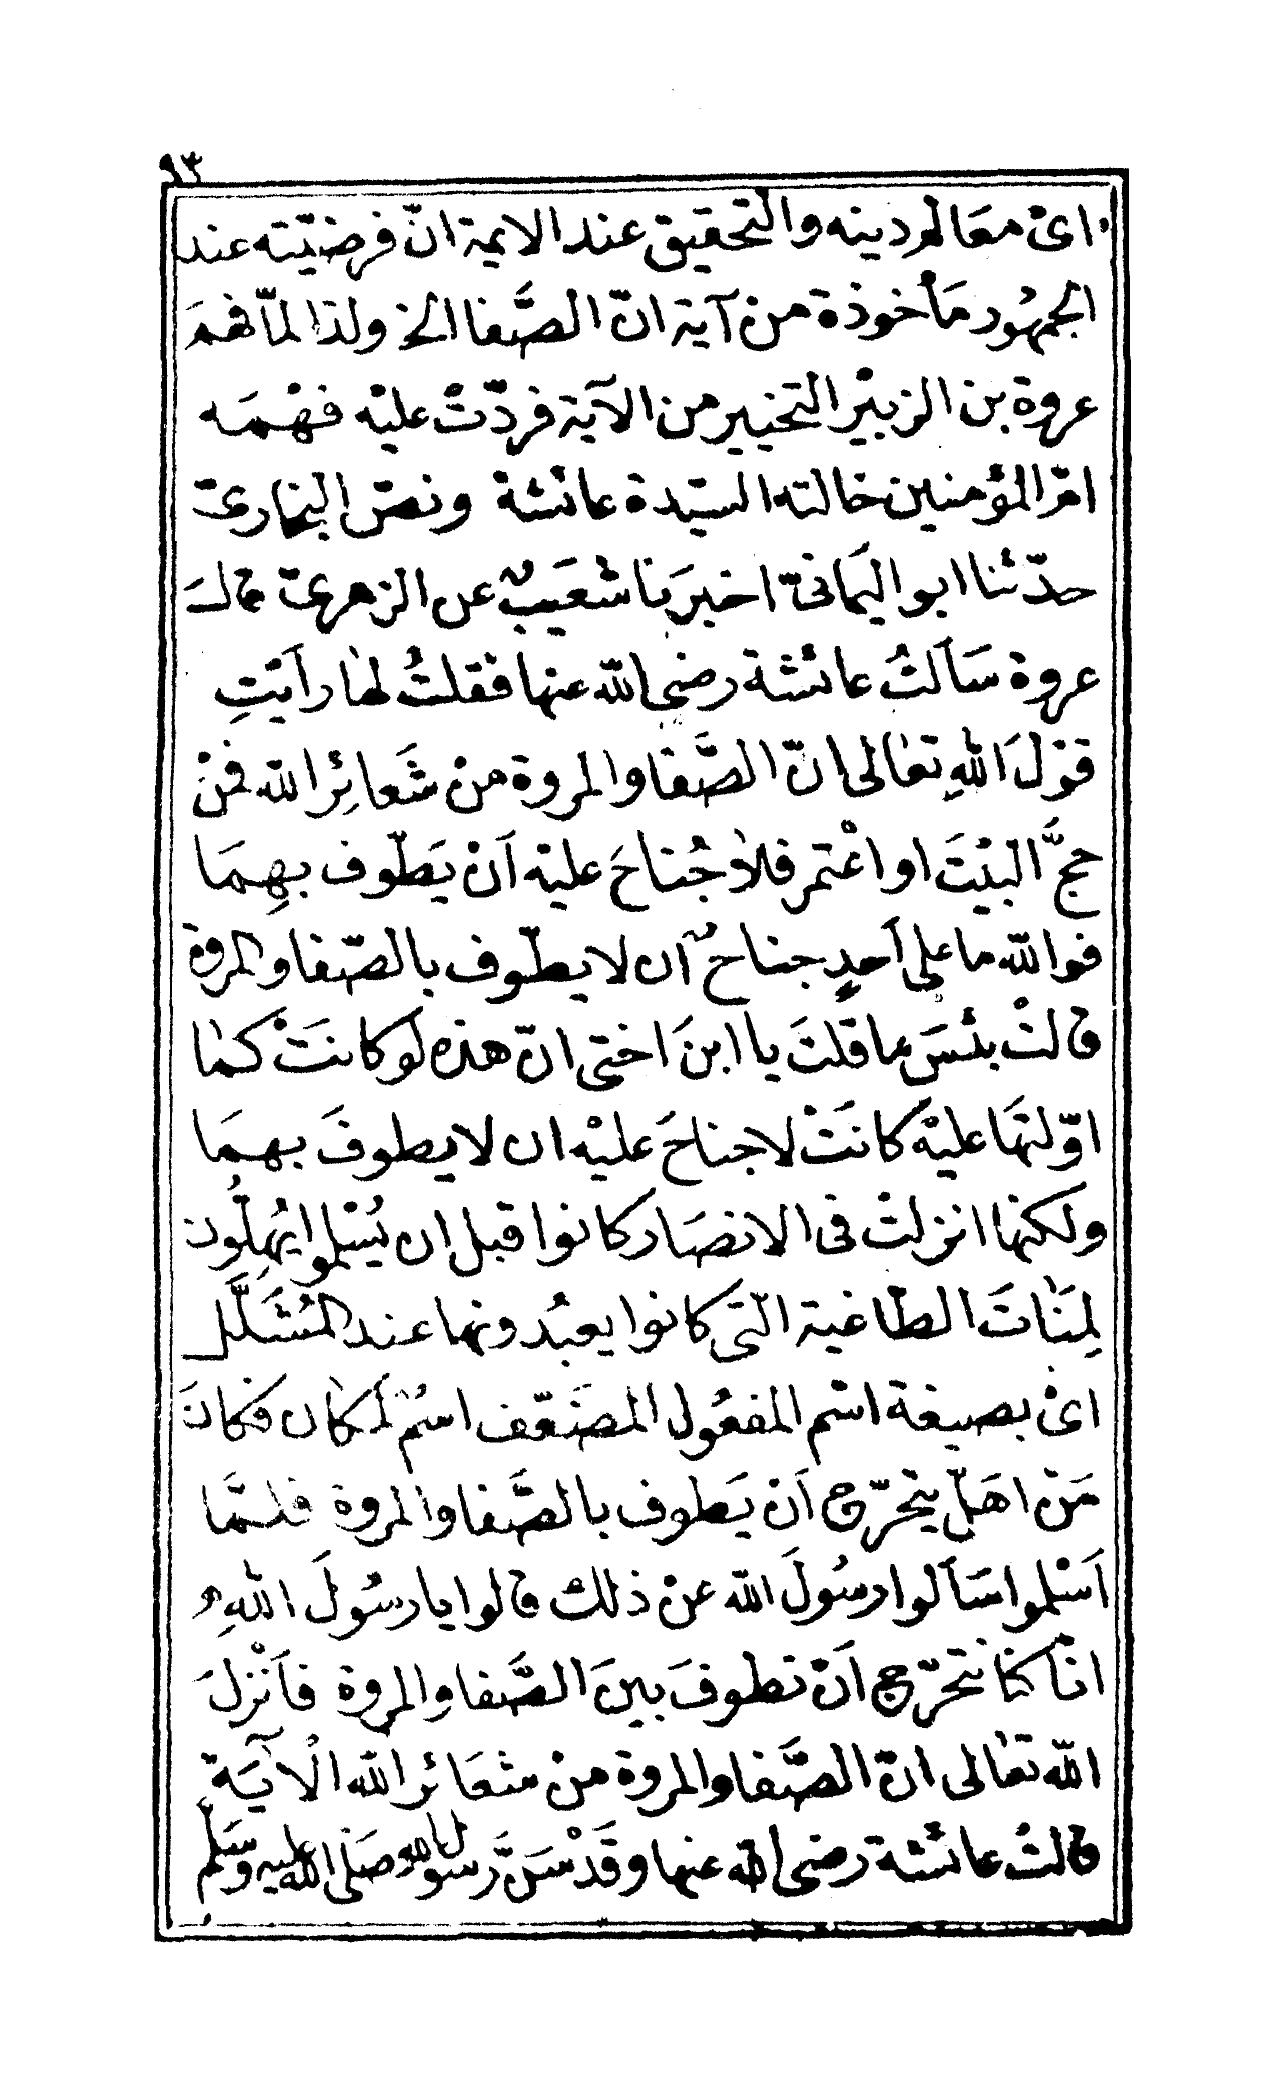 ٩٣
اىْ معَالم دينه والتحقيق عند الايمة انّ فرضيّته عند
الجمهُور مَأخوذة من آية انّ الصَّفا الخ ولذا لمّا فهمَ
عروة بن الزبيْر التخيير من الآية فردّتْ عليْه فهْمَه
امّ المؤمنين خالته السيّدة عائشة ونصّ البخارىّ
حدّثنا ابو اليَمانىّ اخبرَنا شعَيبٌ عن الزهرىّ قال
عروة سَألتُ عائشة رضى الله عنها فقلتُ لها رأيْتِ
قوْلَ اللهِ تعٰالى انّ الصَّفا والمروة منْ شَعائِر الله فمنْ
حجَّ البيْتَ او اعْتمر فلاٰ جُناحَ عليْه اَنْ يَطّوف بهِمَا
فوالله ما على اَحدٍ جناحٌ اَن لا يطّوف بالصّفا والمروة
قالتْ بئسَ ما قلتَ يا ابنَ اختى انّ هذه لو كانَتْ كمٰا
اوّلتهَا عليْه كانَتْ لا جناحَ عليْه ان لا يطوفَ بهمَا
ولكنها انزلتْ فى الانصَار كانوا قبل ان يُسْلموا يُهِلُّون
لِمَنٰاتَ الطّاغية الّتى كانوا يعبُدونها عند المُشَلَّل
اىْ بصيغة اسْم المفعُول المضَعّف اسْمُ لمَكان فكانَ
مَنْ اهَلّ يتحرّج اَنْ يَطوف بالصَّفا والمروة فلمَّا
اَسْلموا سَألوا رسُولَ الله عنْ ذلك قالوا يا رسُولَ اللهِ
انّا كنّا نتحرّج اَنْ نطوفَ بينَ الصَّفا والمروة فاَنْزلَ
الله تعٰالى انّ الصَّفا والمروة منْ شعَائر الله الْآيَة
قالتْ عائشة رضى الله عنها وقَدْ سَنَّ رسول الله صَلى الله عليه وسَلم